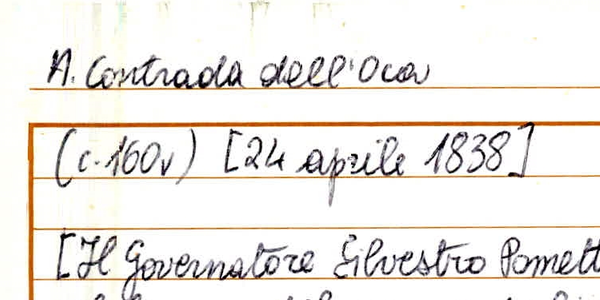 A. Contrada dell'Oca
(c. 160v) [24 aprile 1838]
[Il Governatore Silvestro